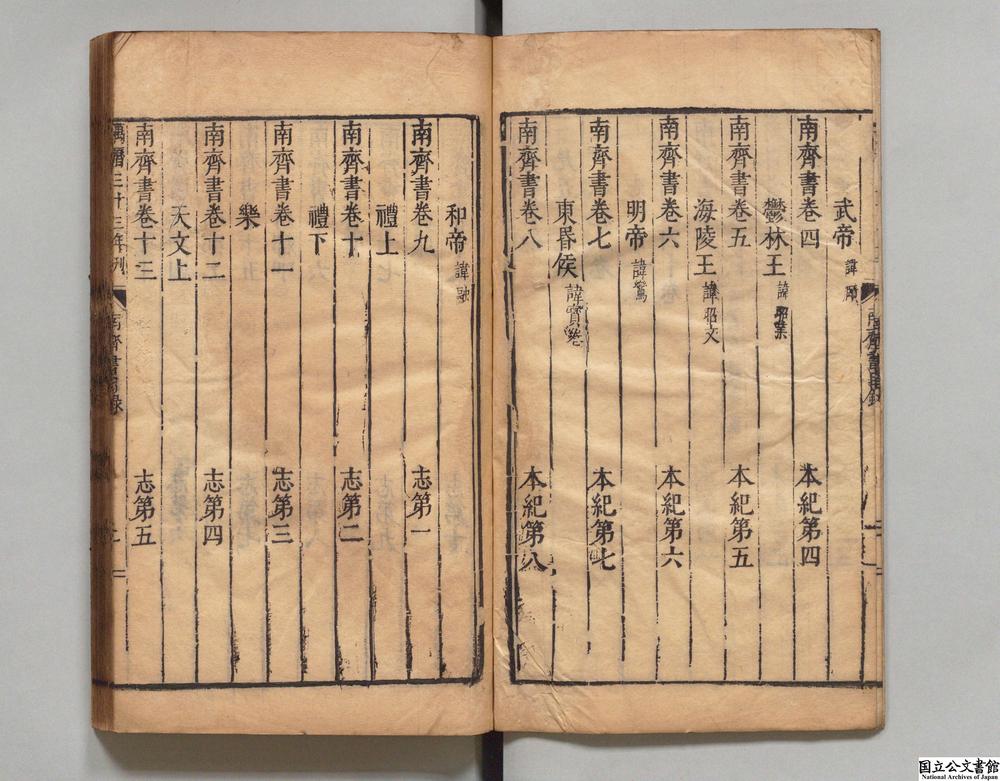 武帝 諱賾
南齊書卷四 本紀第四
鬱林王 諱昭業
南齊書卷五 本紀第五
海陵王 諱昭文
南齊書卷六 本紀第六
明帝 諱鸞
南齊書卷七 本紀第七
東昏侯 諱寶卷
南齊書卷八 本紀第八
和帝 諱
南齊書卷九 志第一
禮上
南齊書卷十 志第二
禮下
南齊書卷十一 志第三
樂
南齊書卷十二 志第四
天文上
南齊書卷十三 志第五
萬曆三十三年刊 南齊書目錄
国立公文書館
National Archives of Japan